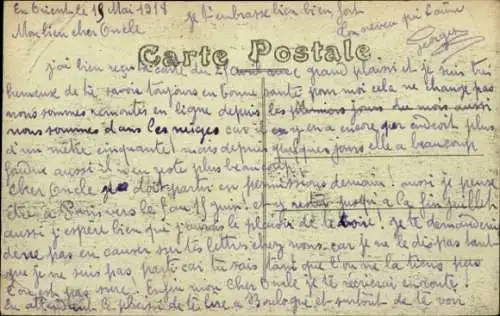 En Orient le 15 Mai 1918
Je t'embrasse bien bien fort
Ton neveu qui t'aime
Georges
Mon bien cher Oncle
Carte Postale
j'ai bien reçu ta carte du avec grand plaisir et je suis très
heureuse de te savoir toujours en bonne santé pour moi cela ne change pas
nous sommes remontés en ligne depuis les premiers jours du mois aussi
nous sommes dans les neiges car il y en a encore par endroit plus
d'un mètre cinquante! mais depuis quelques jours elle a beaucoup
fondue aussi il n'en reste plus beaucoup
Cher Oncle je dois partir en permissions demain! aussi je pense
être à Paris vers le 5 au 15 juin! et y rester jusqu'à la fin juillet
aussi j'espère bien que j'aurais le plaisir de te voir! Je te demanderai
de ne pas en causer sur tes lettres chez nous car je ne le dis pas tant
que je ne suis pas parti car tu sais tant que l'on ne la tiens pas
l'on est pas sûre. Enfin mon cher Oncle je te
En attendant le plaisir de te lire à Boulogne et surtout de te voir